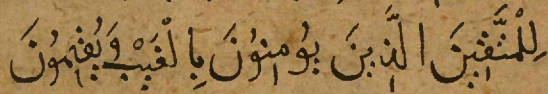 لِلْمُتَّقِينَ الَّذِينَ يُؤْمِنُونَ بِالْغَيْبِ وَيُقِيمُونَ